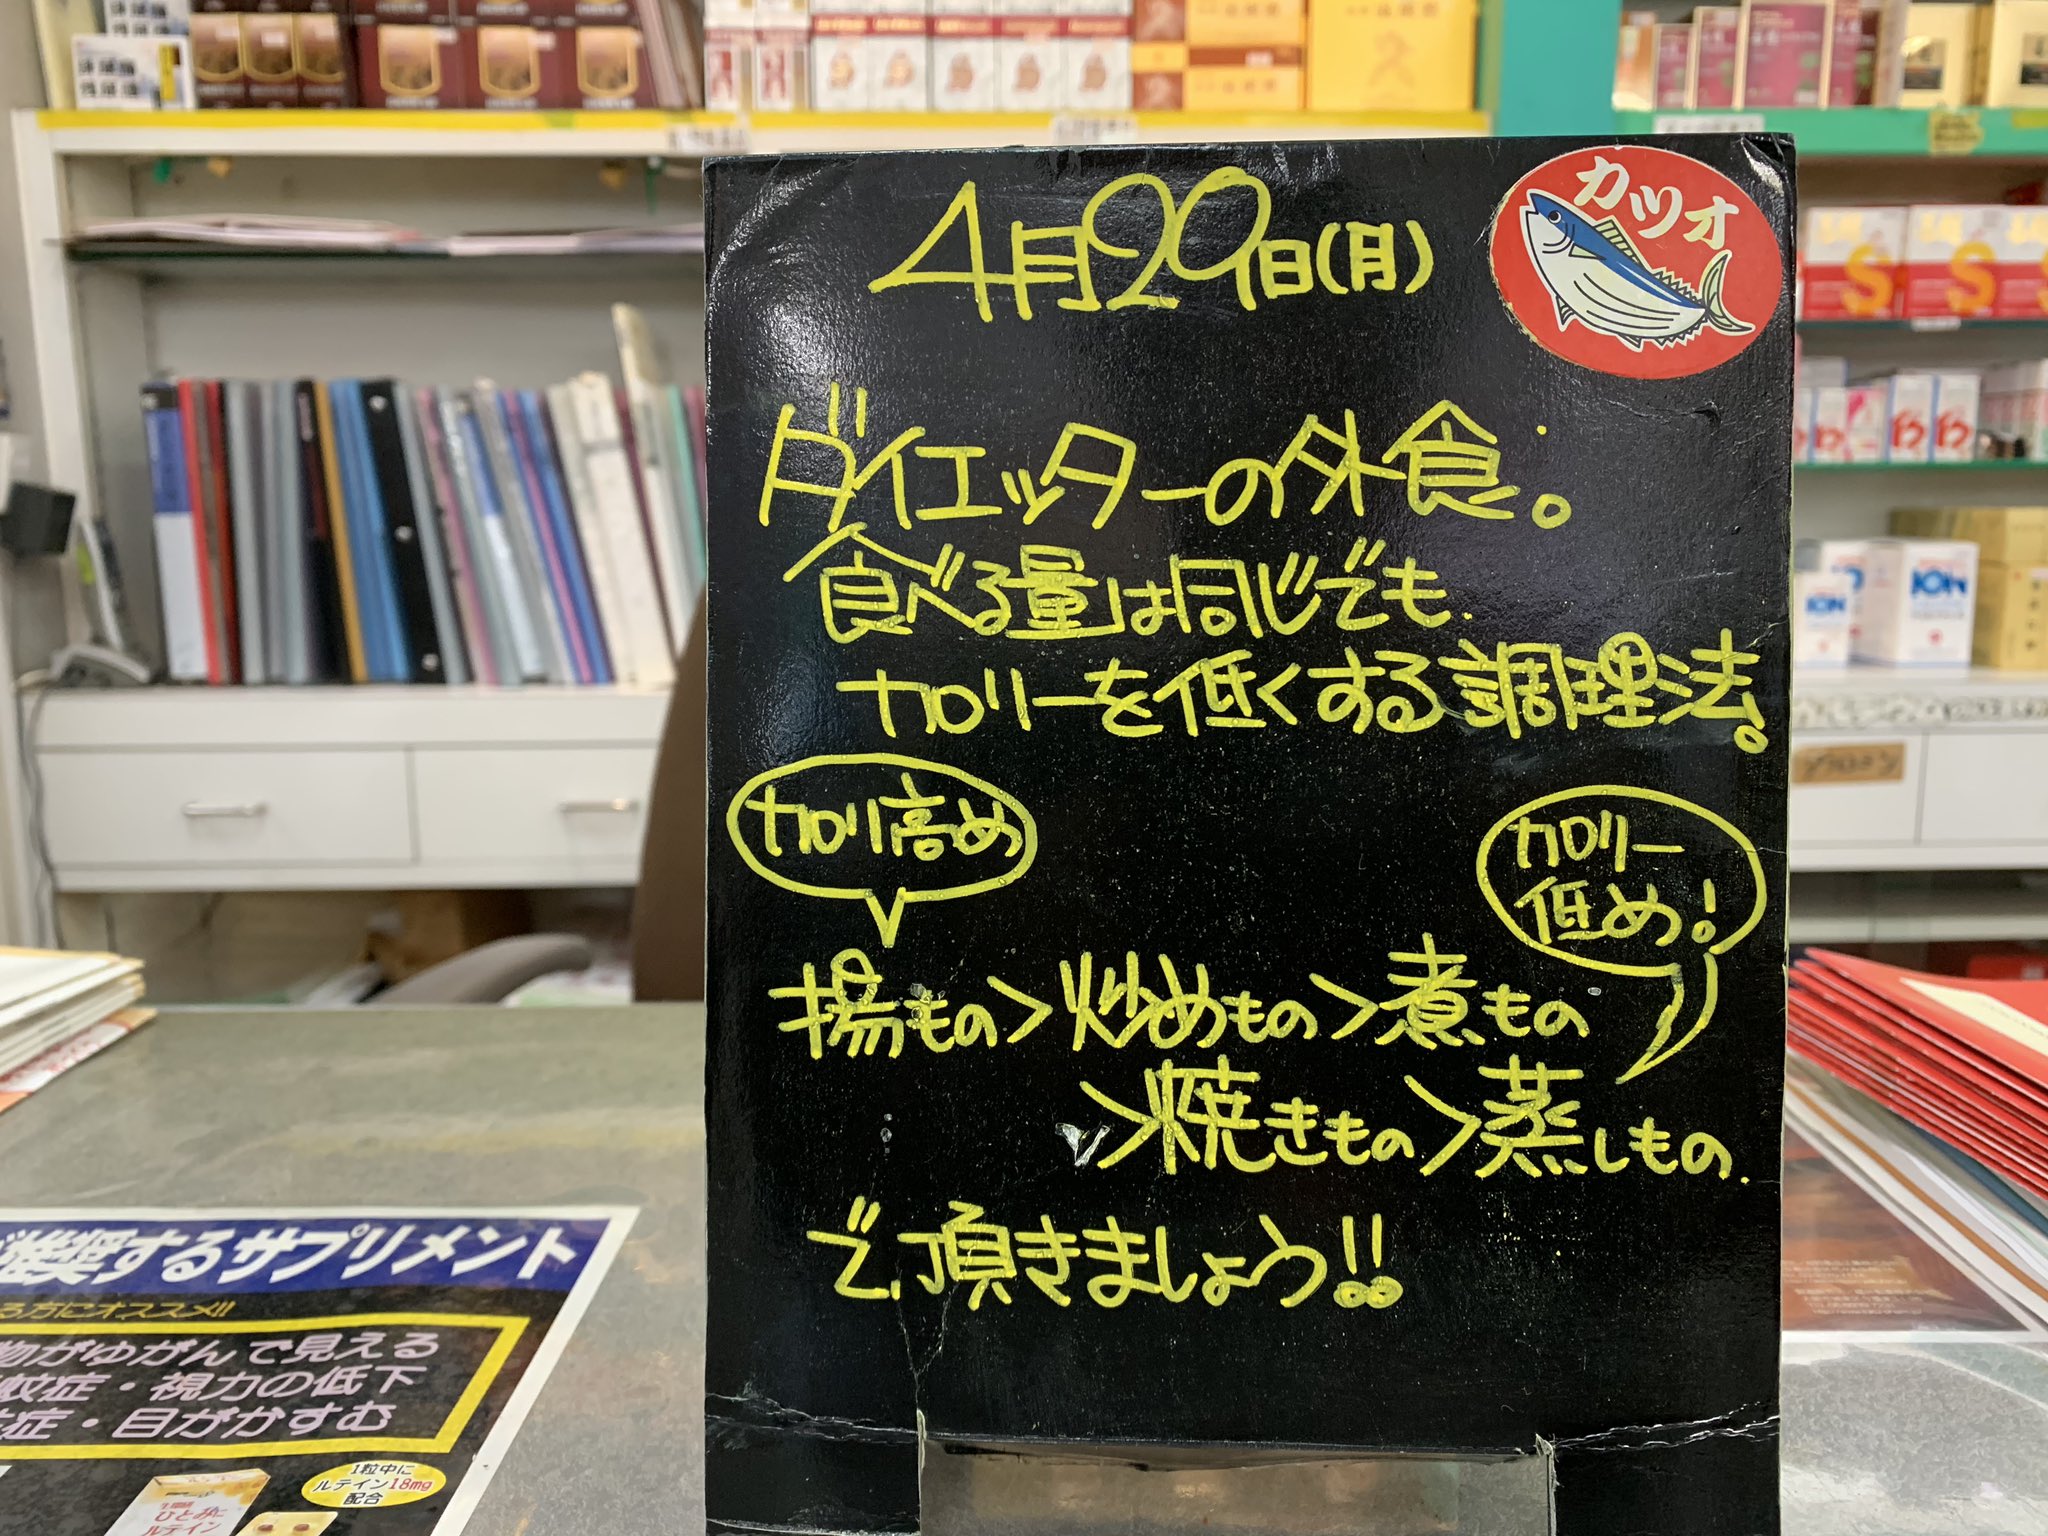 4月29日(月)
カツオ
ダイエッターの外食。
食べる量は同じでも
カロリーを低くする調理法。
カロリ高め
カロリー
低め!
揚もの>炒めもの>煮もの
>焼きもの>蒸しもの.
で、頂きましょう!!
奨するサプリメント
る方にオススメ!!
物がゆがんで見える
蚊症・視力の低下
症・目がかすむ
1粒中に
ルテイン18mg
配合
ひとみに
ルテイン
S
S
S
ION
ION